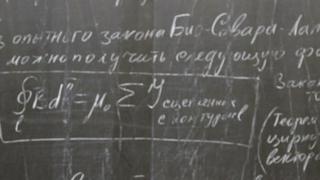 з опытного закона Био-Савари-Лап
можно получить следующую фо
∮ B dl = μ₀ Σ I сцепленных
с контуром
l
Закон
(Теорема
цирку
вектора